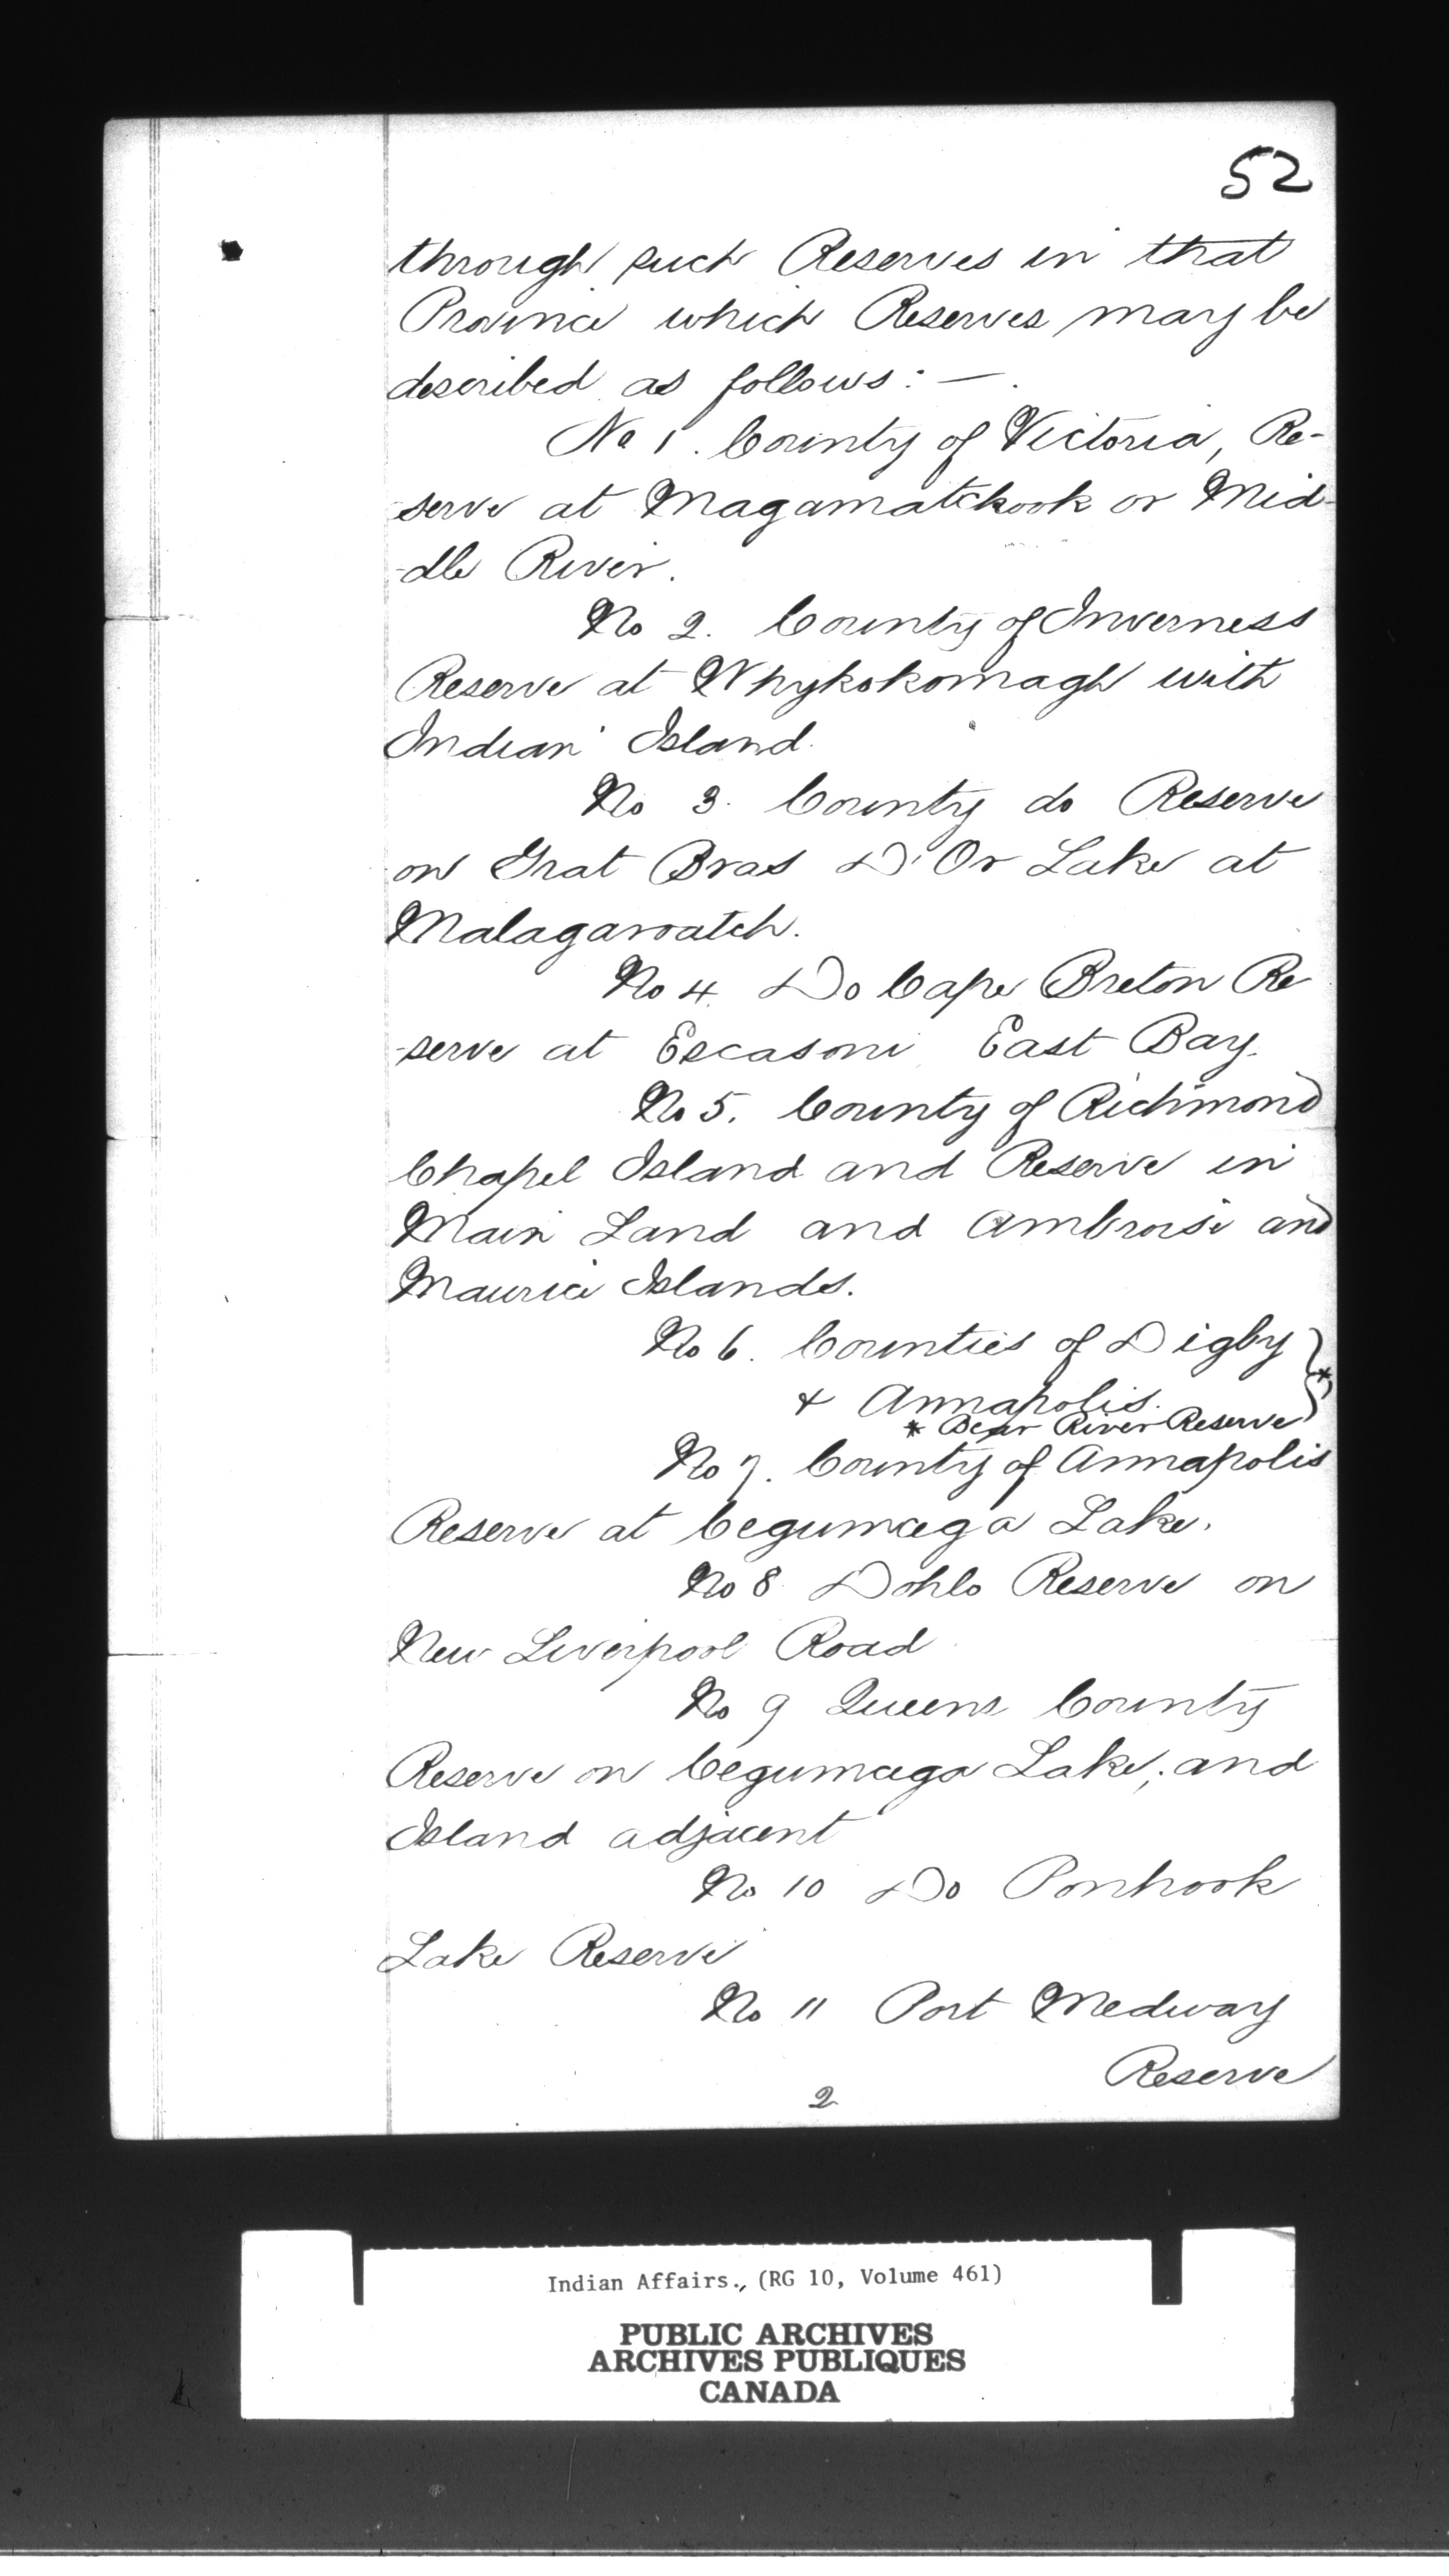 52
through such Reserves in that
Province which Reserves may be
described as follows: —.
No 1. County of Victoria, Re-
-serve at Magamatckook or Mid-
-dle River.
No 2. County of Inverness
Reserve at Whykokomagh with
Indian Island.
No 3. County do Reserve
on Grat Bras D'Or Lake at
Malagawatch.
No 4. Do Cape Breton Re
-serve at Escasoni East Bay.
No 5. County of Richmond
Chapel Island and Reserve in
Main Land and Ambroise and
Maurice Islands.
No 6. Counties of Digby
& Annapolis. *
* Bear River Reserve
No 7. County of Annapolis
Reserve at Cegumcega Lake.
No 8 Reserve on
New Liverpool Road
No 9 Queens County
Reserve on Cegumcega Lake, and
Island adjacent
No 10 Do Ponhook
Lake Reserve
No 11 Port Medway
Reserve
2
Indian Affairs., (RG 10, Volume 461)
PUBLIC ARCHIVES
ARCHIVES PUBLIQUES
CANADA